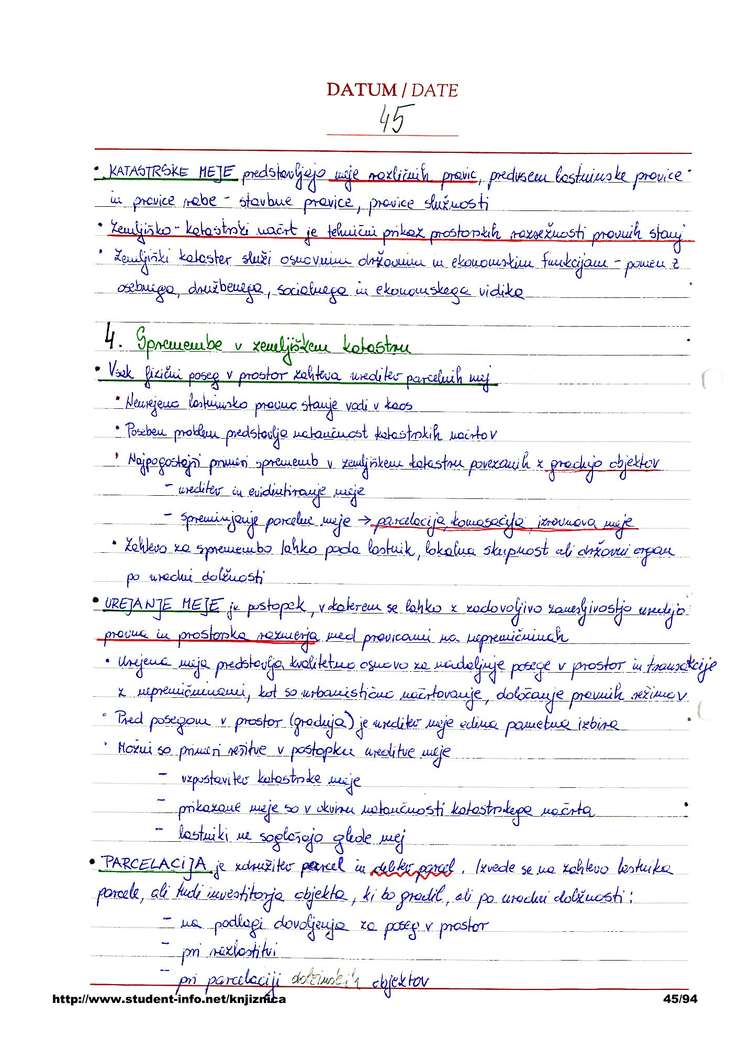 DATUM / DATE
45
• KATASTRSKE MEJE predstavljajo meje različnih pravic, predvsem lastninske pravice
in pravice rabe - stavbne pravice, pravice služnosti
• Zemljiško-katastrski načrt je tehnični prikaz prostorskih razsežnosti pravnih stanj
• Zemljiški kataster služi osnovnim državnim in ekonomskim funkcijam - pomen z
osebnega, družbenega, socialnega in ekonomskega vidika
4. Spremembe v zemljiškem katastru
• Vsak fizični poseg v prostor zahteva ureditev parcelnih mej
• Neurejeno lastninsko pravno stanje vodi v kaos
• Poseben problem predstavlja natančnost katastrskih načrtov
• Najpogostejši primeri sprememb v zemljiškem katastru povezanih z gradnjo objektov
- ureditev in evidentiranje meje
- spreminjanje parcelne meje → parcelacija, komasacija, izravnava meje
• Zahtevo za spremembo lahko poda lastnik, lokalna skupnost ali državni organ
po uradni dolžnosti
• UREJANJE MEJE je postopek, v katerem se lahko z zadovoljivo zanesljivostjo uredijo
pravna in prostorska razmerja med pravicami na nepremičninah
• Urejena meja predstavlja kvalitetno osnovo za nadaljnje posege v prostor in transakcije
z nepremičninami, kot so urbanistično načrtovanje, določanje pravnih režimov
• Pred posegom v prostor (gradnja) je ureditev meje edina pametna izbira
• Možni so primeri rešitve v postopku ureditve meje
- vzpostavitev katastrske meje
- prikazane meje so v okviru natančnosti katastrskega načrta
- lastniki ne soglašajo glede mej
• PARCELACIJA je združitev parcel in delitev parcel. Izvede se na zahtevo lastnika
parcele, ali tudi investitorja objekta, ki bo gradil, ali po uradni dolžnosti:
- na podlagi dovoljenja za poseg v prostor
- pri razlastitvi
- pri parcelaciji objektov
http://www.student-info.net/knjiznica
45/94